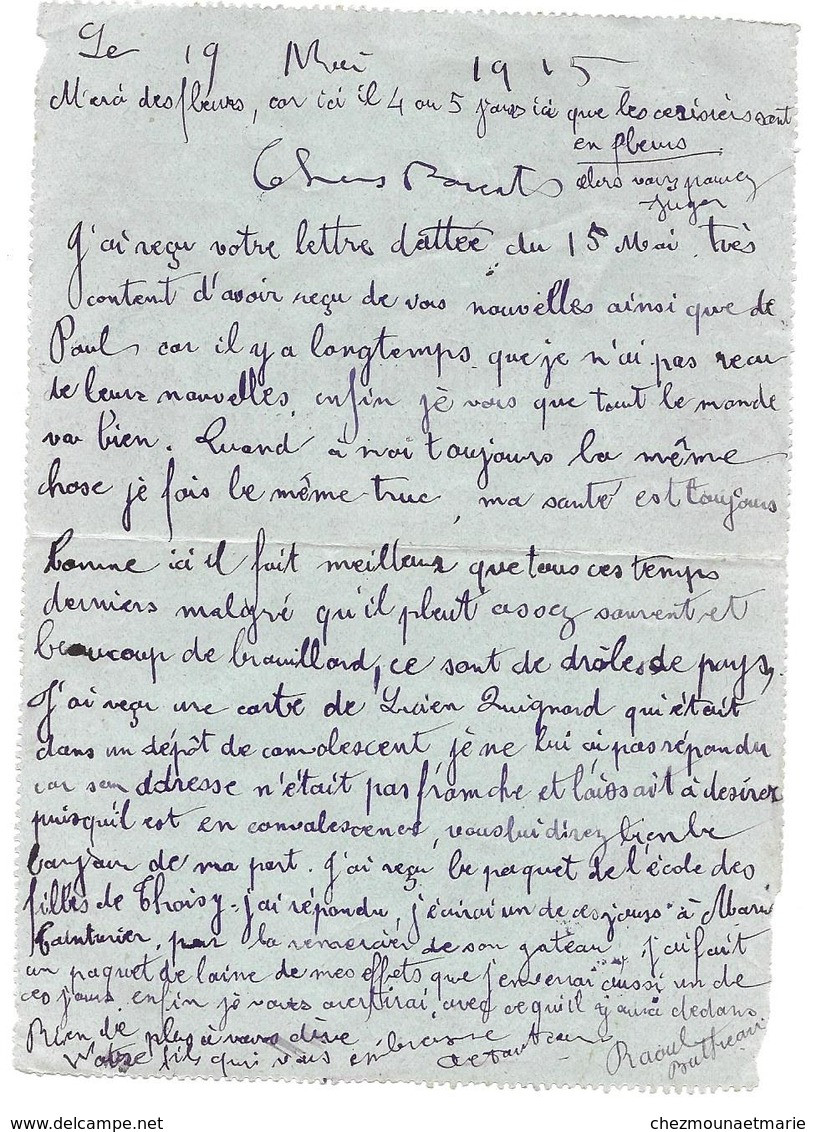 Le 19 Mai 1915
Merci des fleurs, car ici il 4 ou 5 jours ici que les cerisiers sont
en fleurs
alors vous pouvez
juger
Chers Parents
J'ai reçu votre lettre dattée du 15 Mai, très
content d'avoir reçu de vos nouvelles ainsi que de
Paul, car il y a longtemps que je n'ai pas reçu
de leurs nouvelles, enfin je vois que tout le monde
va bien. Quand à moi toujours la même
chose je fais le même truc, ma santé est toujours
bonne ici il fait meilleur que tous ces temps
derniers malgré qu'il pleut assez souvent et
beaucoup de brouillard, ce sont de drôles de pays,
J'ai reçu une carte de Lucien Quignard qui était
dans un dépôt de convalescent, je ne lui ai pas répondu
car son adresse n'était pas franche et laissait à désirer
puisqu'il est en convalescence, vous lui direz bien le
bonjour de ma part. J'ai reçu le paquet de l'école des
filles de Thoisy, j'ai répondu, j'écrirai un de ces jours à Marie
Couturier, pour la remercier de son gateau. J'ai fait
un paquet de laine de mes effets que j'enverrai aussi un de
ces jours, enfin je vous avertirai, avec ce qu'il y aura dedans
Rien de plus à vous dire
Votre fils qui vous embrasse
Raoul
chezmounaetmarie